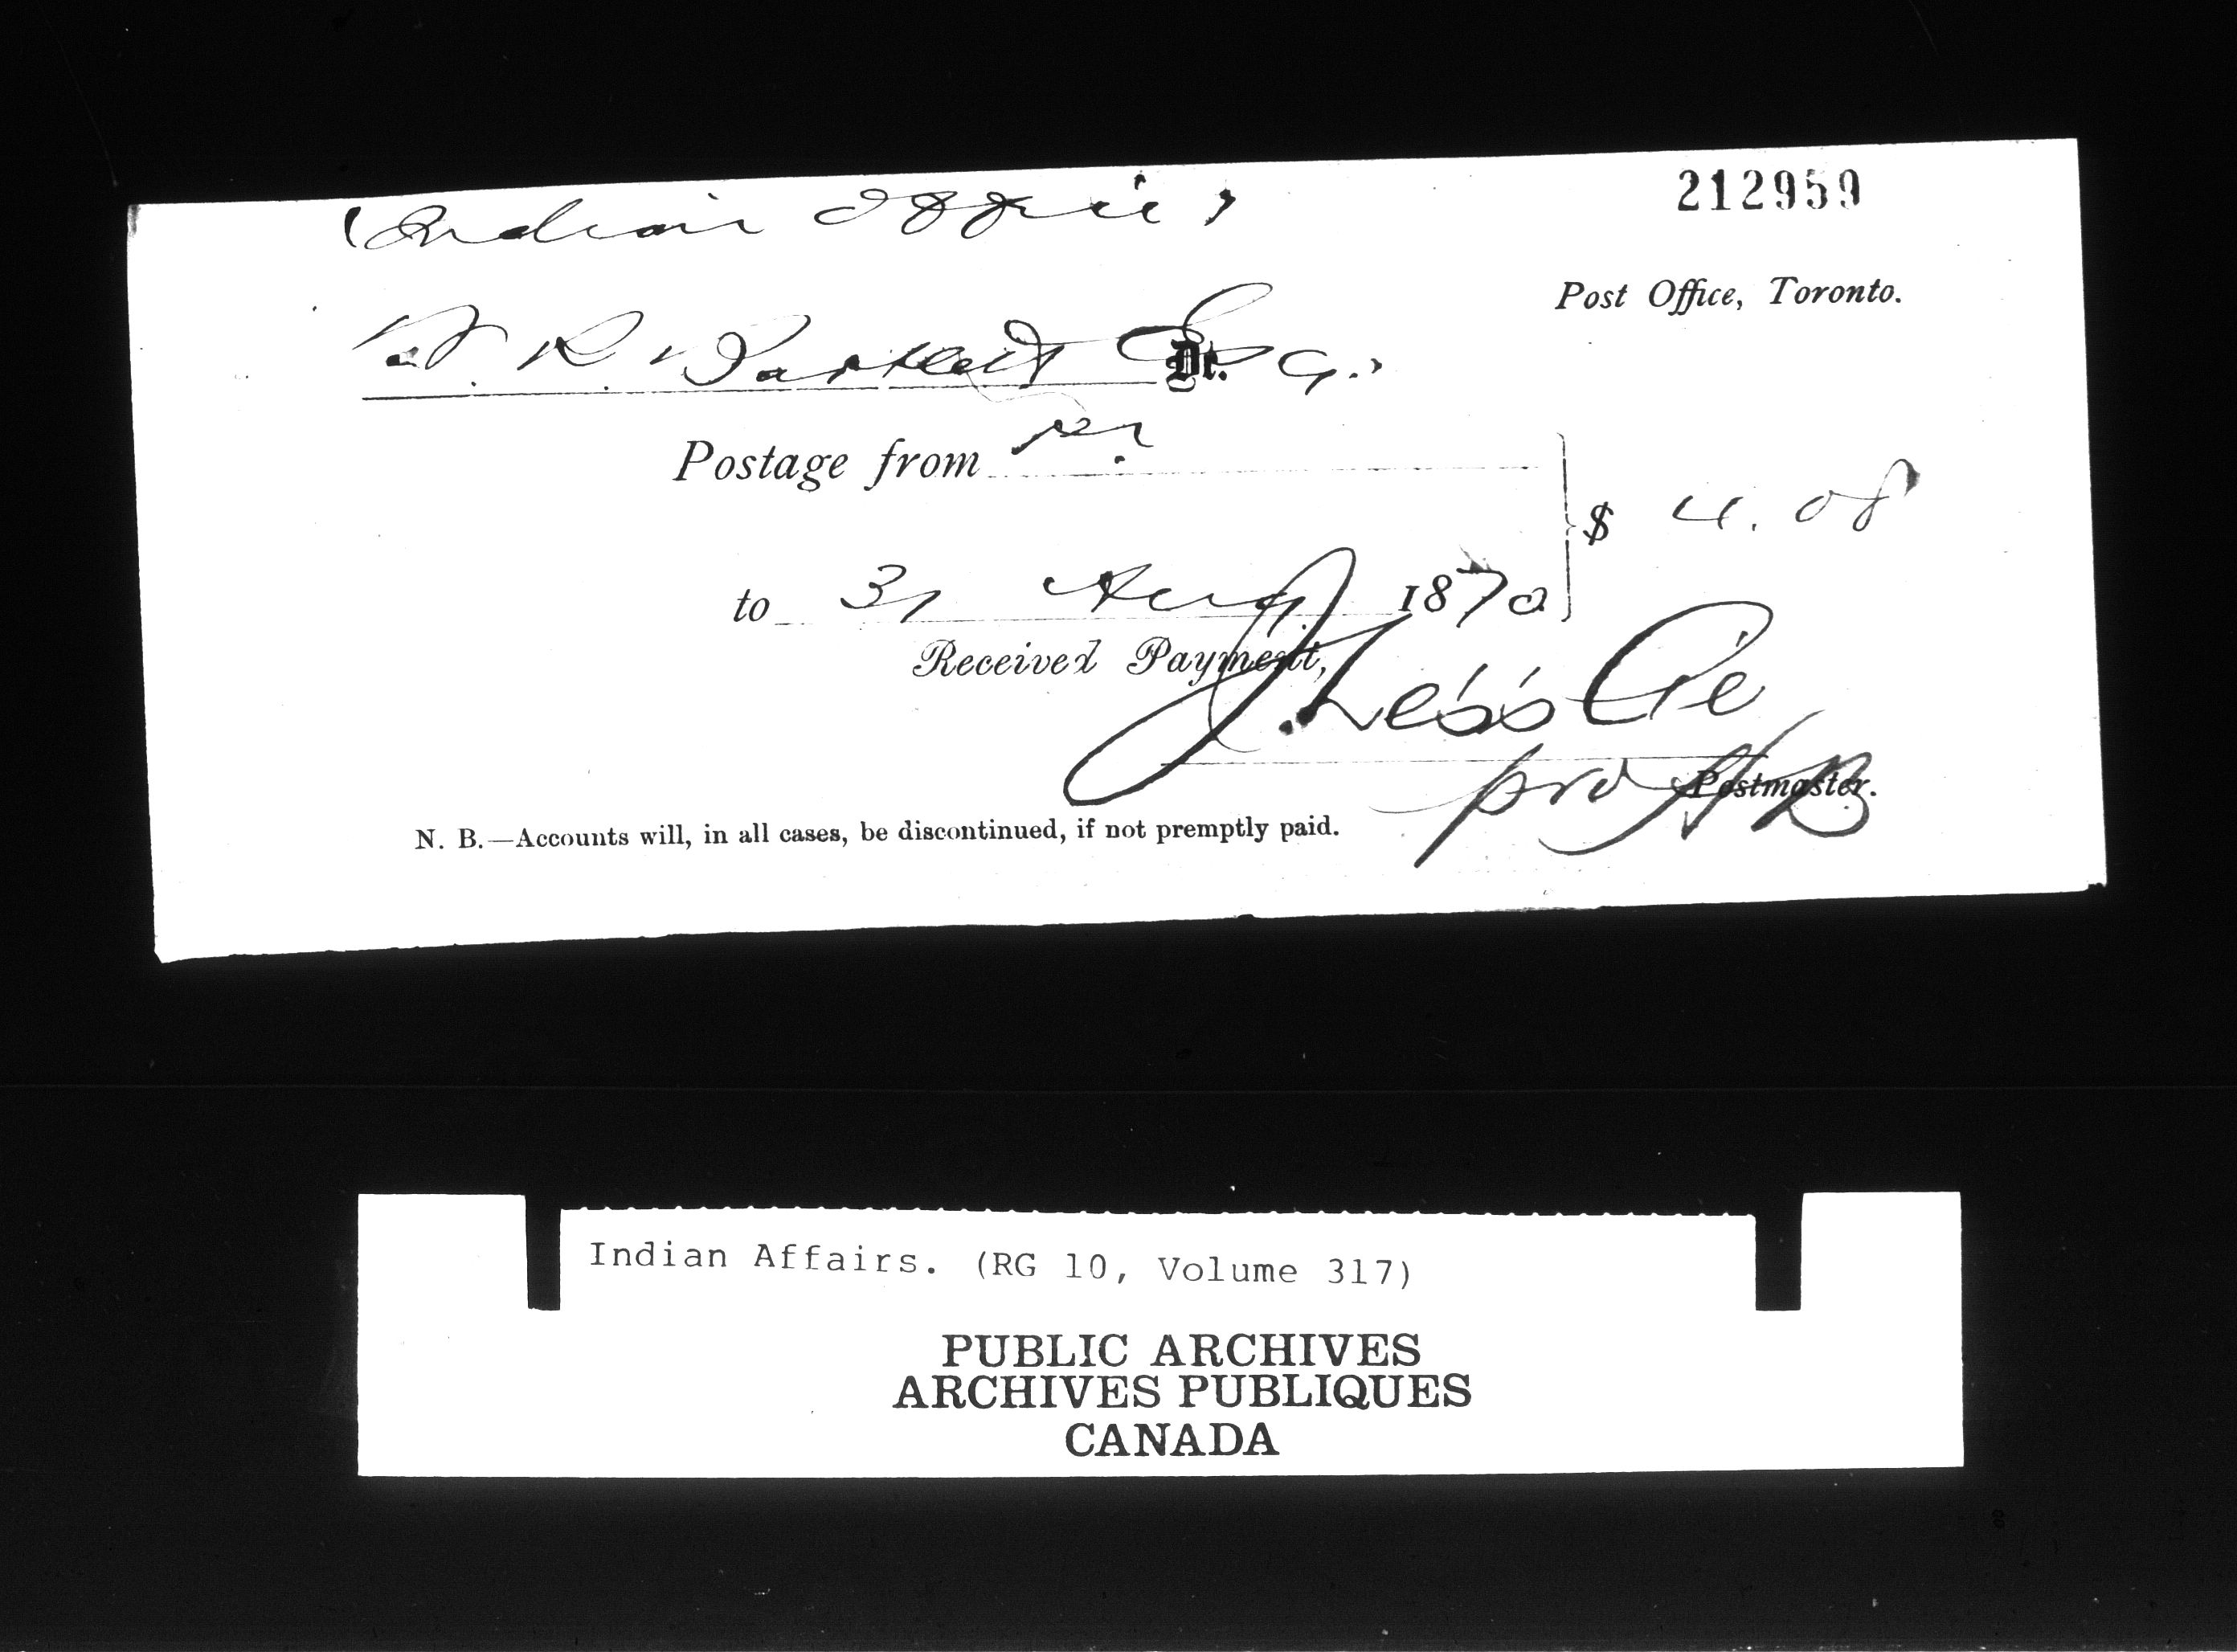 212959
(Indian Office)
Post Office, Toronto.
W. R. Bartlett Esq., Dr.
Postage from
to 31 Aug 1870 $ 4.08
Received Payment,
J. Lesslie
pro HB
Postmaster.
N. B.—Accounts will, in all cases, be discontinued, if not premptly paid.
Indian Affairs. (RG 10, Volume 317)
PUBLIC ARCHIVES
ARCHIVES PUBLIQUES
CANADA